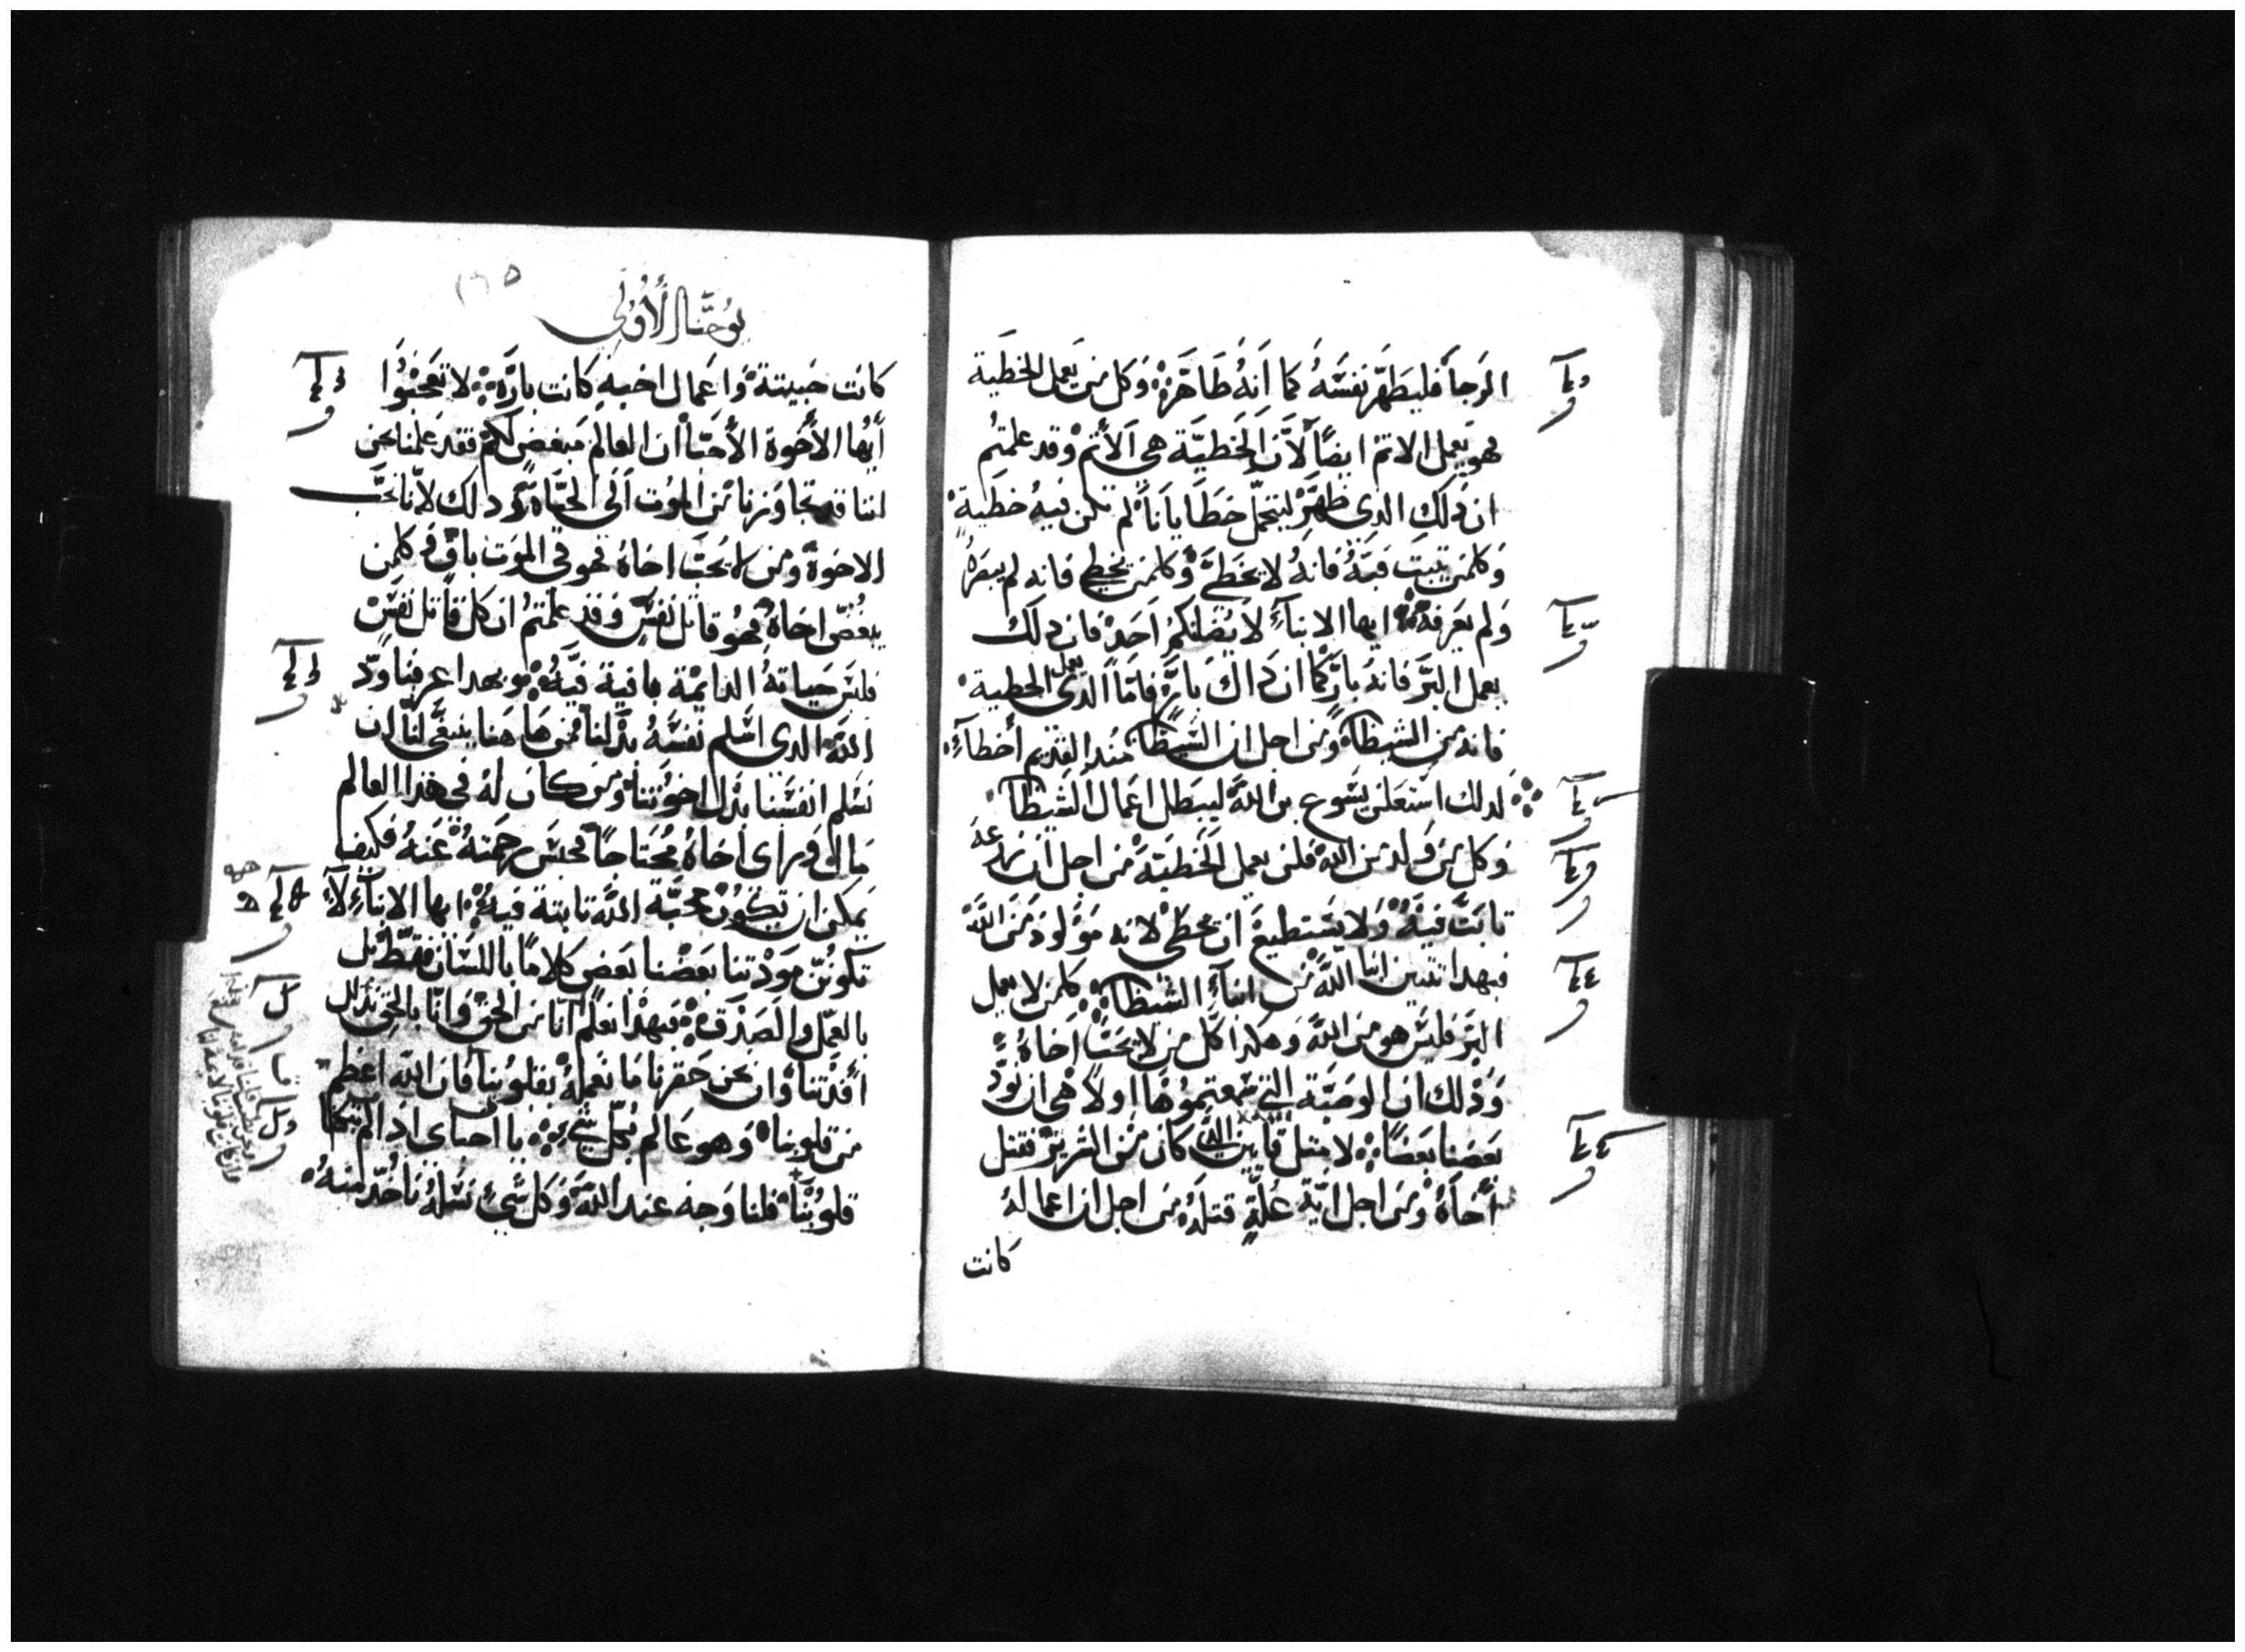 الرجا فليطهر نفسه كما انه طاهر وكل من يعمل الخطية
فهو يعمل الاتم ايضا لان الخطية هي الاتم وقد علمتم
ان دلك الدي ظهر ليتحمل خطايانا لم تكن فيه خطية
وكلمن يتبت فيه فانه لا يخطي وكلمن يخطي فانه لم يبصره
ولم يعرفه ايها الابناء لا يضلنكم احد فان دلك
يعمل البر فانه بار كما ان داك بار فاما الدي يعمل الخطية
فانه من الشيطان ومن اجل ان الشيطان مند القديم اخطاء
لدلك استعلن يسوع بن الله ليبطل اعمال الشيطان
وكل من ولد من الله فلن يعمل الخطية من اجل ان زرعه
تابت فيه ولا يستطيع ان يخطي لانه مولود من الله
فبهدا تتبين ابنا الله من ابناء الشيطان كلمن لا يعمل
البر فليس هو من الله وهكدا كل من لا يحب اخاه
ودلك ان الوصية التي سمعتموها اولا هي ان نود
بعضنا بعضا لا متل قاين الدي كان من الشرير فقتل
اخاه ومن اجل اية علة قتله من اجل ان اعماله
كانت
يوحنا الاولى
١٦٥
كانت خبيتة واعمال اخيه كانت بارة لا تعجبوا
ايها الاخوة الاحبا ان العالم مبغض لكم فقد علمنا نحن
اننا قد تجاوزنا من الموت الى الحياة ودلك لاننا نحب
الاخوة ومن لا يحب اخاه فهو في الموت باق وكلمن
يبغض اخاه فهو قاتل نفس وقد علمتم ان كل قاتل نفس
فليس حياته الدايمة باقية فيه وبهدا عرفنا ود
الله الدي اسلم نفسه بدلنا فمن هاهنا ينبغي لنا ان
نسلم انفسنا بدل اخوتنا ومن كان له في هدا العالم
مال وراى اخاه محتاجا فحبس رحمته عنه فكيف
يمكن ان تكون محبة الله تابتة فيه ايها الابناء لا
تكونن مودتنا بعضنا بعض كلاما باللسان فقط بل
بالعمل والصدق فبهدا نعلم اننا من الحق وانا بالحق ندلل
افدتنا وان نحن حقرنا ما نعمله بقلوبنا فان الله اعظم
من قلوبنا وهو عالم بكل شي يا احباي ادا لم تبكتنا
قلوبنا فلنا وجه عند الله وكل شي نسله ناخد منه